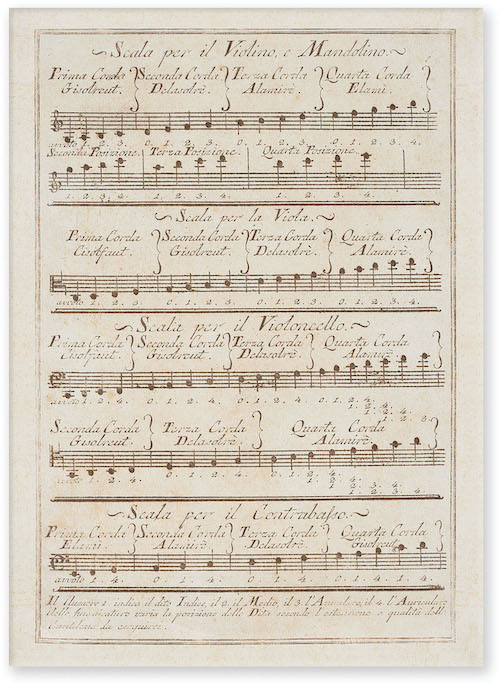 Scala per il Violino, e Mandolino.
Prima Corda Seconda Corda Terza Corda Quarta Corda
Gisolreut. Delasolrè. Alamirè. Elamì.
avvoto 1. 2. 3. 0. 1. 2. 3. 0. 1. 2. 3. 0. 1. 2. 3. 4.
Seconda Posizione. Terza Posizione. Quarta Posizione.
1. 2. 3. 4. 1. 2. 3. 4. 1. 2. 3. 4.
Scala per la Viola.
Prima Corda Seconda Corda Terza Corda Quarta Corda
Cisolfaut. Gisolreut. Delasolrè. Alamirè.
avvoto 1. 2. 3. 0. 1. 2. 3. 0. 1. 2. 3. 0. 1. 2. 3. 4.
Scala per il Violoncello.
Prima Corda Seconda Corda Terza Corda Quarta Corda
Cisolfaut. Gisolreut. Delasolrè. Alamirè.
avvoto 1. 2. 4. 0. 1. 2. 4. 0. 1. 2. 4. 0. 1. 2. 4.
1. 2. 4.
1. 2. 4.
1. 2. 3.
Seconda Corda Terza Corda Quarta Corda
Gisolreut. Delasolrè. Alamirè.
0. 1. 2. 4. 0. 1. 2. 4. 0. 1. 2. 4.
1. 2. 4.
1. 2. 3. 4.
1. 2. 3. 4.
Scala per il Contrabasso.
Prima Corda Seconda Corda Terza Corda Quarta Corda
Elamì. Alamirè. Delasolrè. Gisolreut.
avvoto 1. 4. 0. 1. 4. 0. 1. 4. 0. 1. 4. 1. 4.
Il Numero 1. indica il dito Indice, il 2. il Medio, il 3. l'Annulare, il 4. l'Auriculare
delle varia la posizione delle Dita secondo l'estensione, e qualità dell
Cantilena da eseguirsi.